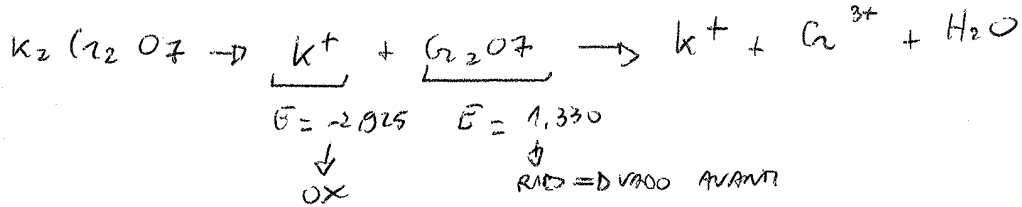 K₂Cr₂O7 → K+ + Cr₂O7 → K+ + Cr³⁺ + H₂O
E = -2,925 E = 1,330
↓ ↓
OX RID ⇒ VADO AVANTI